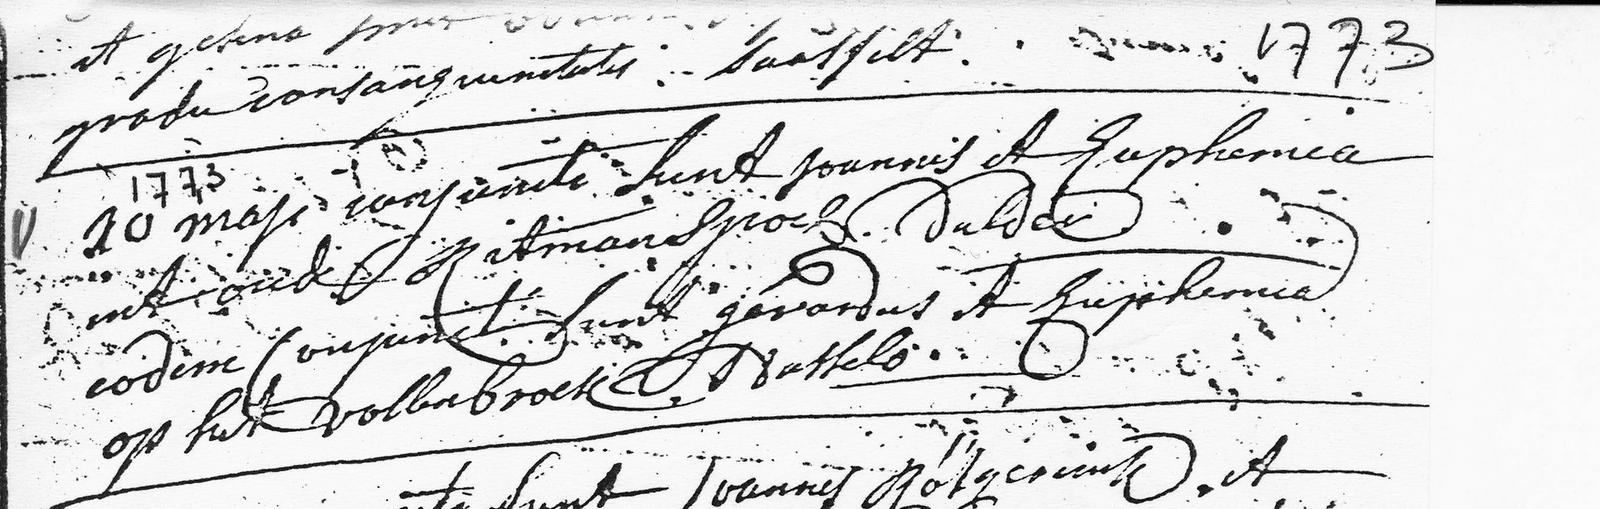 et gesina
gradu consanguinitatis. Saasfelt. 1773
1773
20 maji conjuncti sunt Joannis et Euphemia
uit oude Ritman Sproek. Dulder
eodem Conjuncti sunt gerardus et Euphemia
op het vollenbroek Hasselo
sunt Joannis Rötgerink et